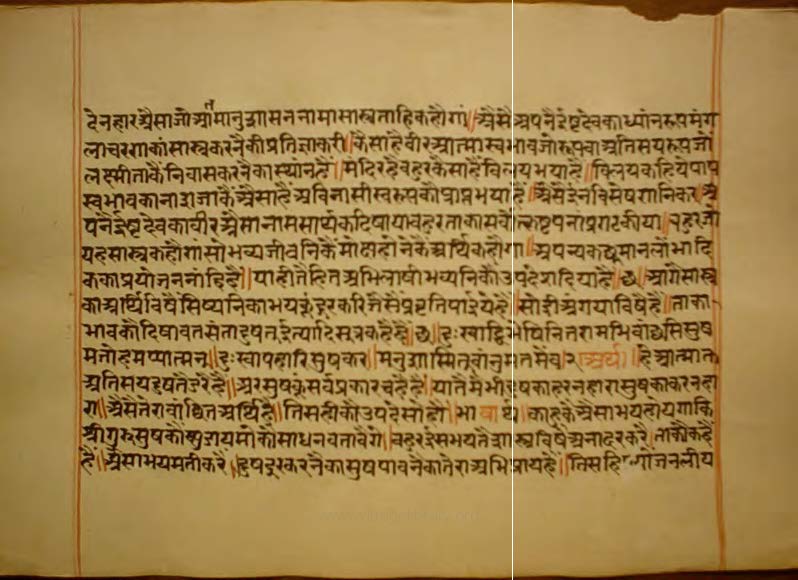 देनहार अैसा जो आत्मानुशासन नामा सास्त्र ताहि कहौगां॥ अैसै अपनै ईष्टदेव का ध्यांनरूप मंग
लाचरण कौं सास्त्र करनै की प्रतिज्ञा करी॥ कैसा है वीर आत्मा स्वभाव जो रूप वा अतिसयरूप जो
लक्ष्मी ताकै निवास करनै का स्थांन है॥ मंदिर है बहुर कैसा है विलय भया है॥ विलय कहिये पाप
स्वभाव का नाश जाकै अैसा है अविनासी स्वरूप कौ प्राप्त भया है॥ अैसै इन विसेषणनि कर अ
पनै ईष्टदेव का वीर अैसा नाम सार्थक दिषाया बहुर ताका सर्वोत्कृष्टपनां प्रगट कीया। बहुर जो
यह सास्त्र कहौगां सो भव्य जीवनिकै मोक्ष होनेकै अर्थि कहौगा॥ अपन्य कछु मान लोभादि
कका प्रयोजन नांहि है॥ याही तै हित अभिलाषी भव्यनि कौ उपदेश दिया है॥ छ॥ आगै सास्त्र
का अर्थि विषै सिष्यनि का भय दूर करि जैसै प्रवृति पाईये है॥ सो ही अंगया विषै है॥ ताका
भाव कौ दिषावत संता दुषत इत्यादि सूत्र कहै है॥ छ॥ दुःखाद्बिभेषि नितरामभिवांछसि सुष
मतोहमप्यात्मन्॥ दुःखापहारि सुषकर॥ मनुशास्मि तवानुमतमेव॥ २ अर्थ॥ हे आत्मा त
अतिसय दुषतै डरै है॥ अर सुष कूं सर्व प्रकार चहै है॥ यातै मै भी दुष का हरनहारा सुष का करनहा
रा॥ अैसै तेरा वांछित अर्थि है॥ तिसही कौ उपदेसो हौ॥ भावार्थ॥ काहूकै अैसा भय होयगा कि
श्रीगुरु सुष कौ छुडाय मोकौ साधन बतावैगे॥ बहुर इस भयतै शास्त्र विषै अनादर करै॥ ताकौ कहै
है॥ अैसा भय मती करै॥ दुष दूर करनै का सुष पावनै का तेरा अभिप्राय है॥ तिसहि